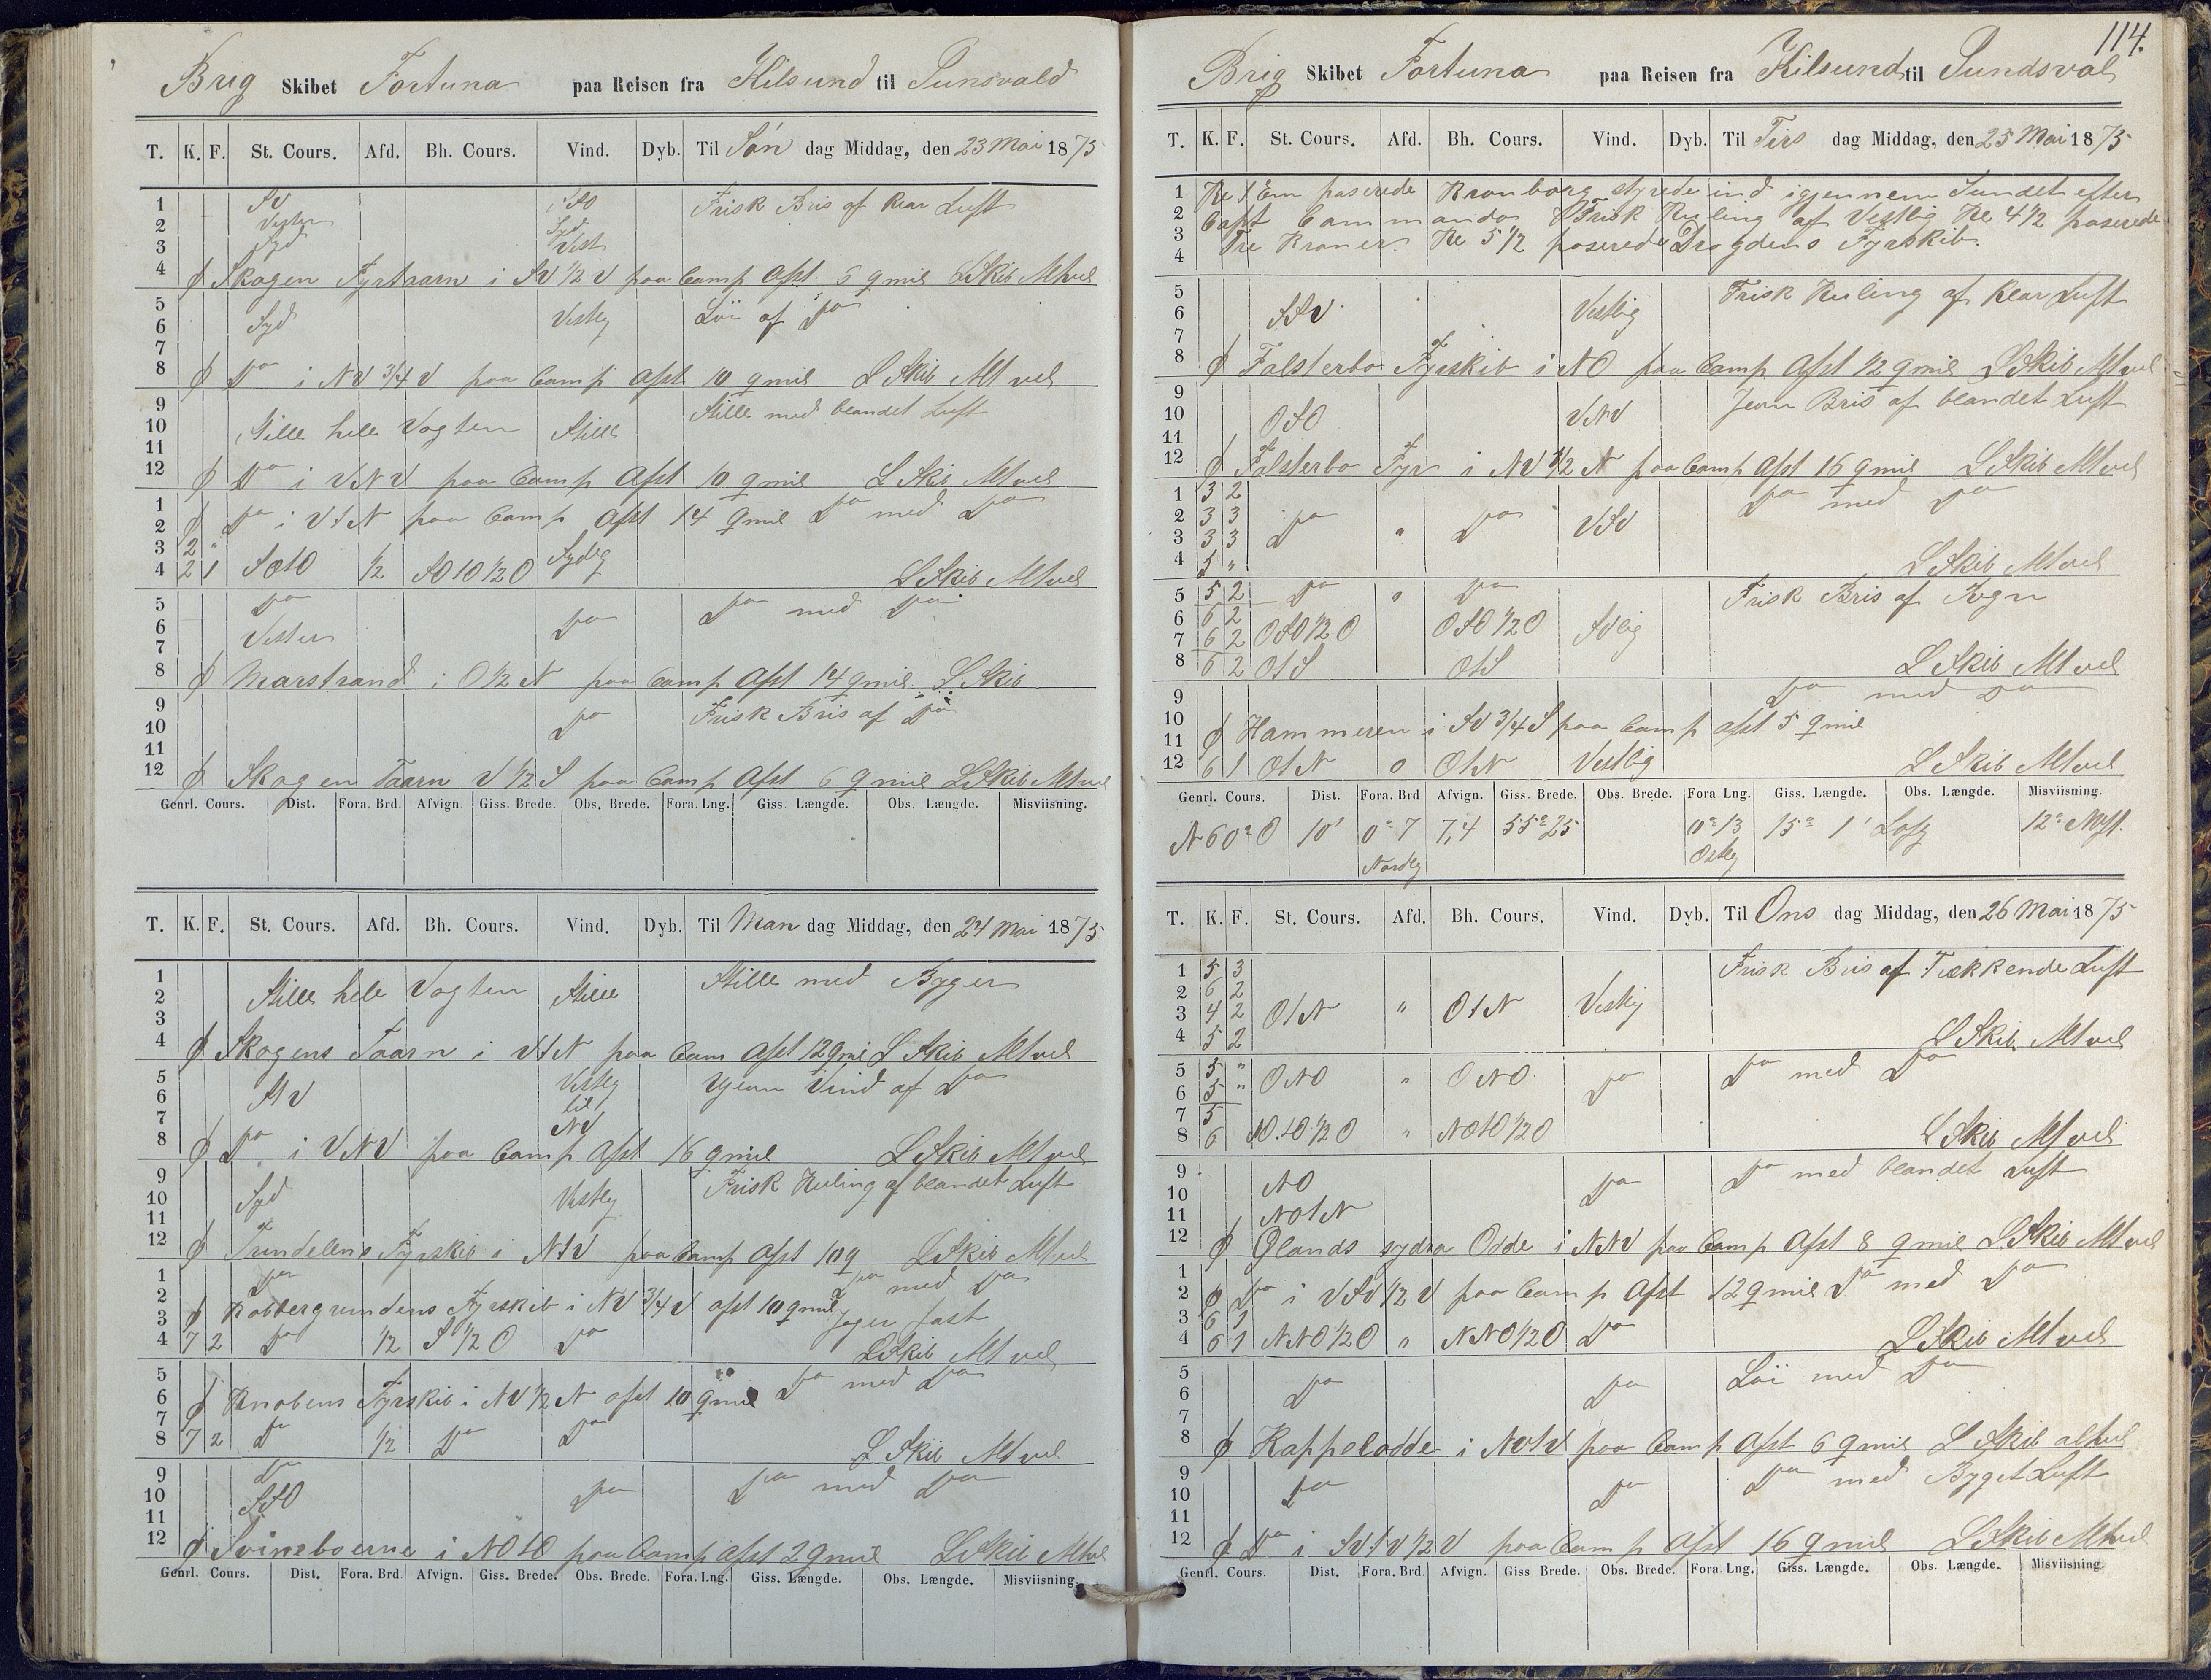 Brig Skibet Fortuna paa Reisen fra Kilsund til Sunsvald
T. K. F. St. Cours. Afd. Bh. Cours. Vind. Dyb. Til Søn dag Middag, den 23 Mai 1875
1 SV SO Frisk Bris af klar Luft
2 Vester Syd
3 Syd Vest
4 ϕ Skagen Fyrtaarn i SV 1/2 V paa Comp Afst. 6 qmil L Skib Alt vel
5
6 Syd Vestlig Løi af Do
7
8 ϕ Do i NV 3/4 V paa Comp Afst 10 qmil L Skib Alt vel
9 Stille med blandet Luft
10 Stille hele Vagten Stille
11
12 ϕ Do i VNV paa Comp Afst 10 qmil L Skib Alt vel
1
2 ϕ Do i VtN paa Comp Afst 14 qmil Do med Do
3 2 "
4 2 1 SOtO 1/2 SOtO 1/2 O Sydlig L Skib Alt vel
5 Do Do med Do
6 Vester Do
7
8 ϕ Marstrand i O 1/2 N paa Comp Afst 14 qmil L Skib
9 Frisk Bris af Do
10 Do
11
12 ϕ Skagen Taarn V 1/2 S paa Comp Afst 6 qmil L Skib Alt vel
Genrl. Cours. Dist. Fora. Brd. Afvign. Giss. Brede. Obs. Brede. Fora. Lng. Giss. Længde. Obs. Længde. Misviisning.
T. K. F. St. Cours. Afd. Bh. Cours. Vind. Dyb. Til Man dag Middag, den 24 Mai 1875
1 Stille med Byger
2 Stille hele Vagten Stille
3
4 ϕ Skagens Taarn i VtN paa Com Afst 12 qmil L Skib Alt vel
5 Vestlig Ujevn Vind af Do
6 StV til
7 NV
8 ϕ Do i VNV paa Comp Afst 16 qmil L Skib Alt vel
9 Frisk Kuling af blandet Luft
10 Syd Vestlig
11
12 ϕ Trindelens Fyrskib i NtV paa Comp Afst 10 q L Skib Alt vel
1 Do Do med Do
2
3 ϕ Kobbergrundens Fyrskib i NV 3/4 V afst 10 qmil Jager fast
4 7 2 Do 1/2 S 1/2 O Do L Skib Alt vel
5
6 ϕ Knobens Fyrskib i NV 1/2 N afst 10 qmil Do med Do
7
8 7 2 Do 1/2 Do Do L Skib Alt vel
9 Do
10 SSO Do Do med Do
11
12 ϕ Svineboerne i NOtO paa Comp afst 2 qmil L Skib Alt vel
Genrl. Cours. Dist. Fora. Brd. Afvign. Giss. Brede. Obs. Brede. Fora. Lng. Giss. Længde. Obs. Længde. Misviisning.
114.
Brig Skibet Fortuna paa Reisen fra Kilsund til Sundsval
T. K. F. St. Cours. Afd. Bh. Cours. Vind. Dyb. Til Tirs dag Middag, den 25 Mai 1875
1 Kl 1 Em paserede Kronborg styrede ind igjennem Sundet efter
2 Capt Commando Frisk Kuling af Vestlig Kl 4 1/2 paserede
3 Tre Kroner Kl 5 1/2 paserede Drogdens Fyrskib.
4
5 Frisk Kuling af Klar Luft
6 SSV Vestlig
7
8 ϕ Falsterbo Fyrskib i NO paa Comp Afst 1/2 qmil L Skib Alt vel
9 Jevn Bris af blandet Luft
10 OSO VNV
11
12 ϕ Falsterbo Fyr i NV 1/2 N paa Comp Afst 16 qmil L Skib Alt vel
1 3 2 Do med Do
2 3 3 Do " Do VSV
3 3 3
4 5 " L Skib Alt vel
5 5 2 Do " Do Frisk Bris af Regn
6 6 2 OSO 1/2 O OSO 1/2 O SVlig
7 6 2
8 6 2 OtS OtS L Skib Alt vel
9 Do med Do
10 ϕ Hammeren i SV 3/4 S paa Comp afst 5 qmil
11
12 6 1 OtN 0 OtN Vestlig L Skib Alt vel
Genrl. Cours. Dist. Fora. Brd Afvign. Giss. Brede. Obs. Brede. Fora. Lng. Giss. Længde. Obs. Længde. Misviisning.
N 60° O 10' 0° 7 7,4 55° 25 0° 13 15° 1' 12°
Nordlig Østlig
T. K. F. St. Cours. Afd. Bh. Cours. Vind. Dyb. Til Ons dag Middag, den 26 Mai 1875
1 5 3 Frisk Bris af Trækkende Luft
2 6 2
3 4 2 OtN " OtN Vestlig
4 5 2 L Skib Alt vel
5 5 " Do med Do
6 5 " ONO " ONO Do
7 5
8 6 NO.tO 1/2 O " NOtO 1/2 O L Skib Alt vel
9 Do med blandet Luft
10 NO Do
11 NOtN
12 ϕ Ølands sydra Odde i NNV paa Comp Afst 8 qmil L Skib Alt vel
1
2 ϕ Do i VSV 1/2 V paa Comp Afst 12 qmil Do med Do
3 6 1
4 6 1 NNO 1/2 O " NNO 1/2 O Do L Skib Alt vel
5 Løi med Do
6 Do Do
7
8 ϕ Kappelodde i NVtV paa Comp Afst 6 qmil L Skib alt vel
9 Do med Byget Luft
10 Do Do
11
12 ϕ Do i SVtV 1/2 V paa Comp Afst 16 qmil L Skib Alt vel
Genrl. Cours. Dist. Fora. Brd. Afvign. Giss Brede. Obs. Brede. Fora. Lng. Giss. Længde. Obs. Længde. Misviisning.